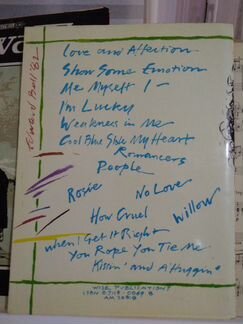 Love and Affection
Show Some Emotion
Me Myself I
I'm Lucky
Weakness in Me
Cool Blue Stole My Heart
Romancers
People
Rosie
No Love
How Cruel
Willow
When I Get It Right
You Rope You Tie Me
Kissin' and A'Huggin'
WISE PUBLICATIONS
ISBN 0.7119.
AM